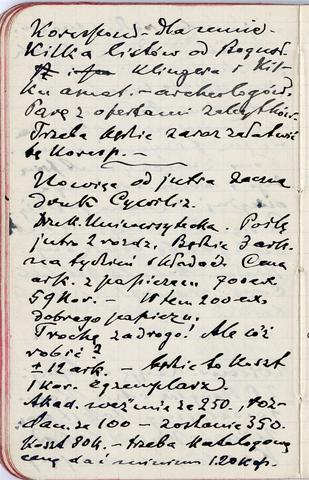 Korespond. dla mnie.
Kilka listów od Bogusł.
Klingera i kit-
ku amat. - archeologów.
Parę z ofertami zabytków.
Trzeba będzie zaraz załatwić
tę koresp. —
No więc od jutra zaczną
druk Cywiliz.
Druk. Uniwersytecka. Poślę
jutro 2 rozdz. Będzie 3 ark.
na tydzień składać. Cena
ark. z papierem 700 ex.
59 Kor. — w tem 200 ex.
dobrego papieru.
Trochę za drogo! Ale cóż
robić?
± 12 ark. — będzie to koszt
1 Kor. egzemplarz.
Akad. weźmie za 250,
dam za 100 – zostanie 350.
Koszt 80 h. – trzeba katalogową
cenę dać minim 1.20 Kor.